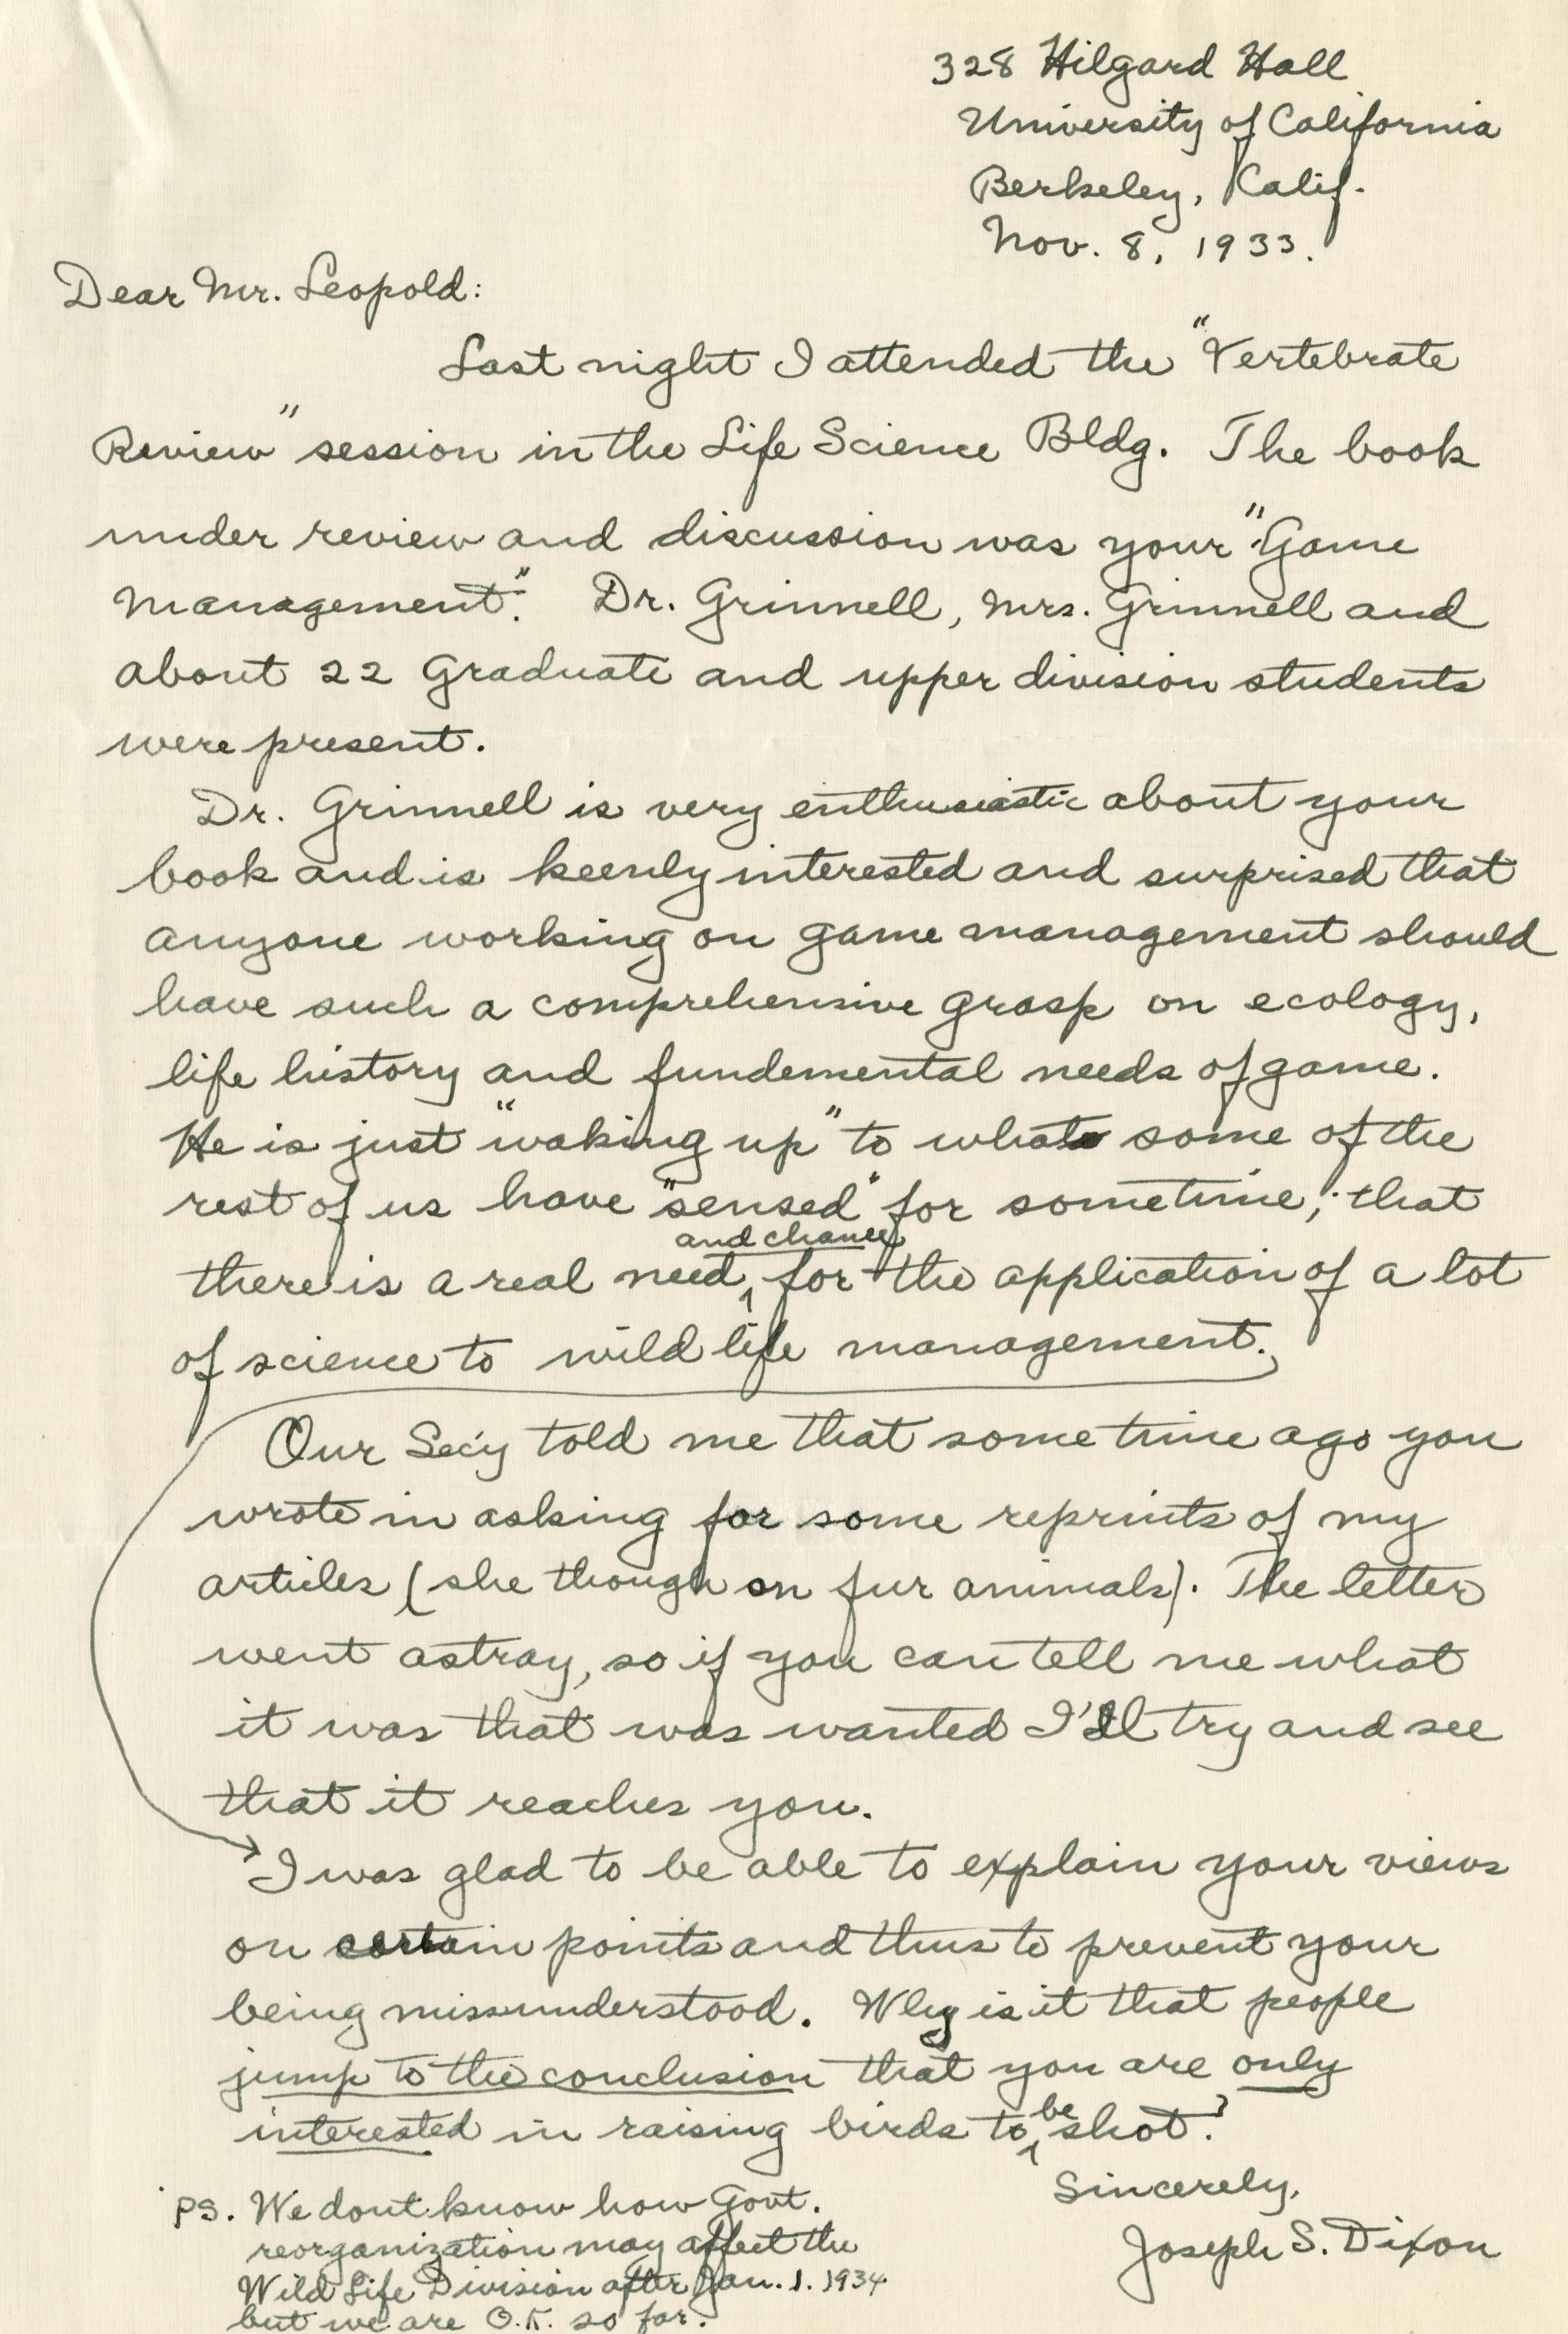 328 Hilgard Hall
University of California
Berkeley, Calif.
Nov. 8, 1933.
Dear Mr. Leopold:
Last night I attended the "Vertebrate
Review" session in the Life Science Bldg. The book
under review and discussion was your "Game
Management". Dr. Grinnell, Mrs. Grinnell and
about 22 graduate and upper division students
were present.
Dr. Grinnell is very enthusiastic about your
book and is keenly interested and surprised that
anyone working on game management should
have such a comprehensive grasp on ecology,
life history and fundemental needs of game.
He is just "waking up" to what some of the
rest of us have "sensed" for sometime; that
and chance
there is a real need for the application of a lot
of science to wild life management.
Our Sec'y told me that some time ago you
wrote in asking for some reprints of my
articles (she though on fur animals). The letter
went astray, so if you can tell me what
it was that was wanted I'll try and see
that it reaches you.
I was glad to be able to explain your views
on certain points and thus to prevent your
being missunderstood. Why is it that people
jump to the conclusion that you are only
interested in raising birds to be shot?
Sincerely,
Joseph S. Dixon
PS. We dont know how Govt.
reorganization may affect the
Wild Life Division after Jan. 1. 1934
but we are O.K. so far.